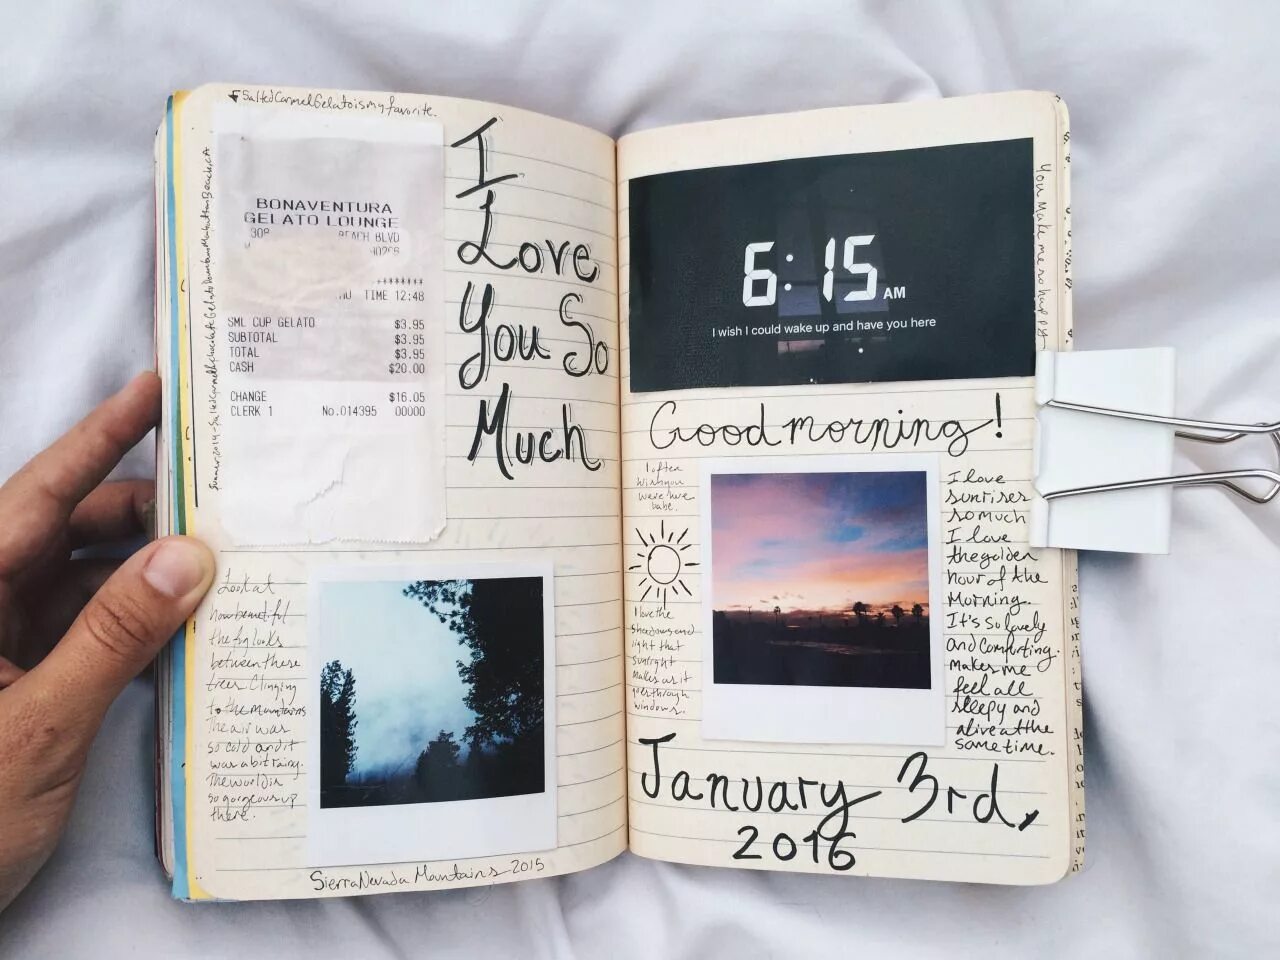 Salted Carmel Gelato is my favorite.
BONAVENTURA
GELATO LOUNGE
BEACH BLVD
TIME 12:48
SML CUP GELATO $3.95
SUBTOTAL $3.95
TOTAL $3.95
CASH $20.00
CHANGE $16.05
CLERK 1 No.014395 00000
I
Love
You So
Much
Look at
how beautiful
the fog looks
between these
trees Clinging
to the mountains
The air was
so cold and it
was a bit rainy.
The world is
so gorgeous up
there.
Sierra Nevada Mountains 2015
6:15 AM
I wish I could wake up and have you here
You Make me so happy
Good morning!
I often
wish you
were here
babe.
I love the
shadows and
light that
sunlight
makes as it
goes through
windows.
I love
sunrises
so much
I love
the golden
hour of the
Morning.
It's so lovely
and comforting.
Makes me
feel all
sleepy and
alive at the
same time.
January 3rd,
2016